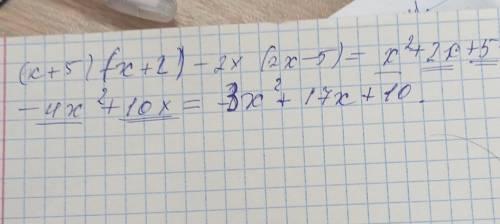 (x+5)(x+2)-2x(2x-5)=x²+2x+5
-4x²+10x=-3x²+17x+10.